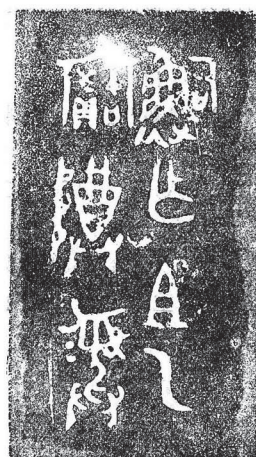 乍且乙
寶𨻰彝